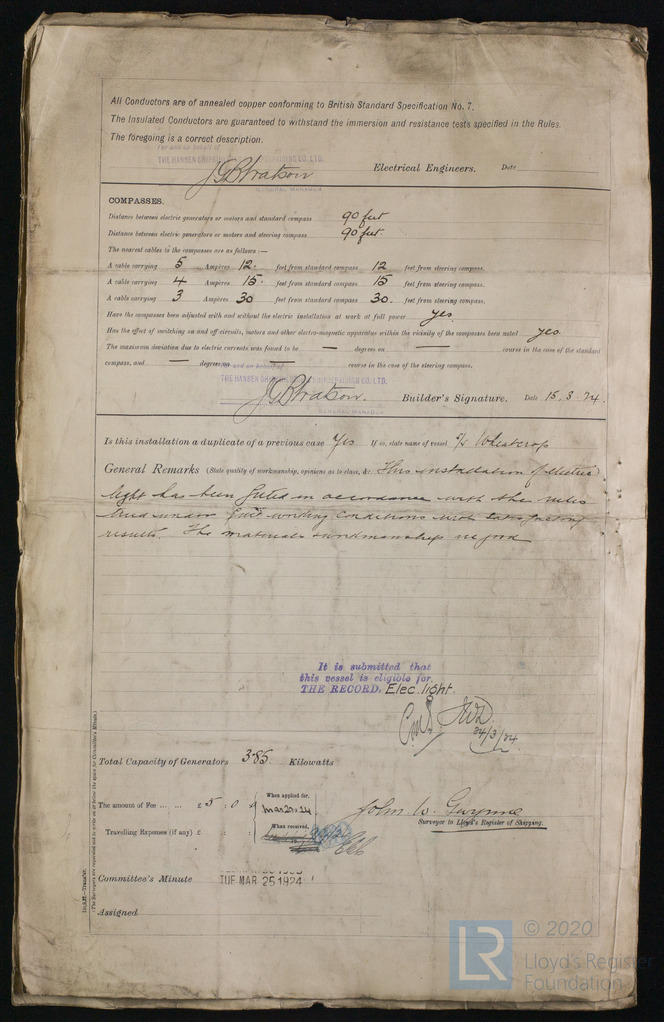 All Conductors are of annealed copper conforming to British Standard Specification No. 7.
The Insulated Conductors are guaranteed to withstand the immersion and resistance tests specified in the Rules.
The foregoing is a correct description.
For and on behalf of
THE HANSEN CO. LTD.
Electrical Engineers. Date
GENERAL MANAGER
COMPASSES.
Distance between electric generators or motors and standard compass 90 feet
Distance between electric generators or motors and steering compass 90 feet.
The nearest cables to the compasses are as follows:—
A cable carrying 5 Ampères 12. feet from standard compass 12 feet from steering compass.
A cable carrying 4 Ampères 15. feet from standard compass 15 feet from steering compass.
A cable carrying 3 Ampères 30 feet from standard compass 30. feet from steering compass.
Have the compasses been adjusted with and without the electric installation at work at full power yes.
Has the effect of switching on and off circuits, motors and other electro-magnetic apparatus within the vicinity of the compasses been noted yes.
The maximum deviation due to electric currents was found to be — degrees on — course in the case of the standard
compass, and — degrees on — course in the case of the steering compass.
For and on behalf of
THE HANSEN CO. LTD.
Builder's Signature. Date 15.3.24.
GENERAL MANAGER
Is this installation a duplicate of a previous case Yes If so, state name of vessel S/S Wheatcrop
General Remarks (State quality of workmanship, opinions as to class, &c. This installation of electric
light has been fitted in accordance with the rules
tried under full working conditions with satisfactory
results. The materials & workmanship are good
It is submitted that
this vessel is eligible for
THE RECORD. Elec. light.
24/3/24
Total Capacity of Generators 3.85 Kilowatts
The amount of Fee ... ... £ 5 : 0 :
When applied for,
Mar 20.24
John W. Gwynne
Surveyor to Lloyd's Register of Shipping.
Travelling Expenses (if any) £ : :
When received,
Committee's Minute TUE MAR 25 1924
Assigned
(The Surveyors are requested not to write on or below the space for Committee's Minute.)
© 2020
LR
Lloyd's Register
Foundation